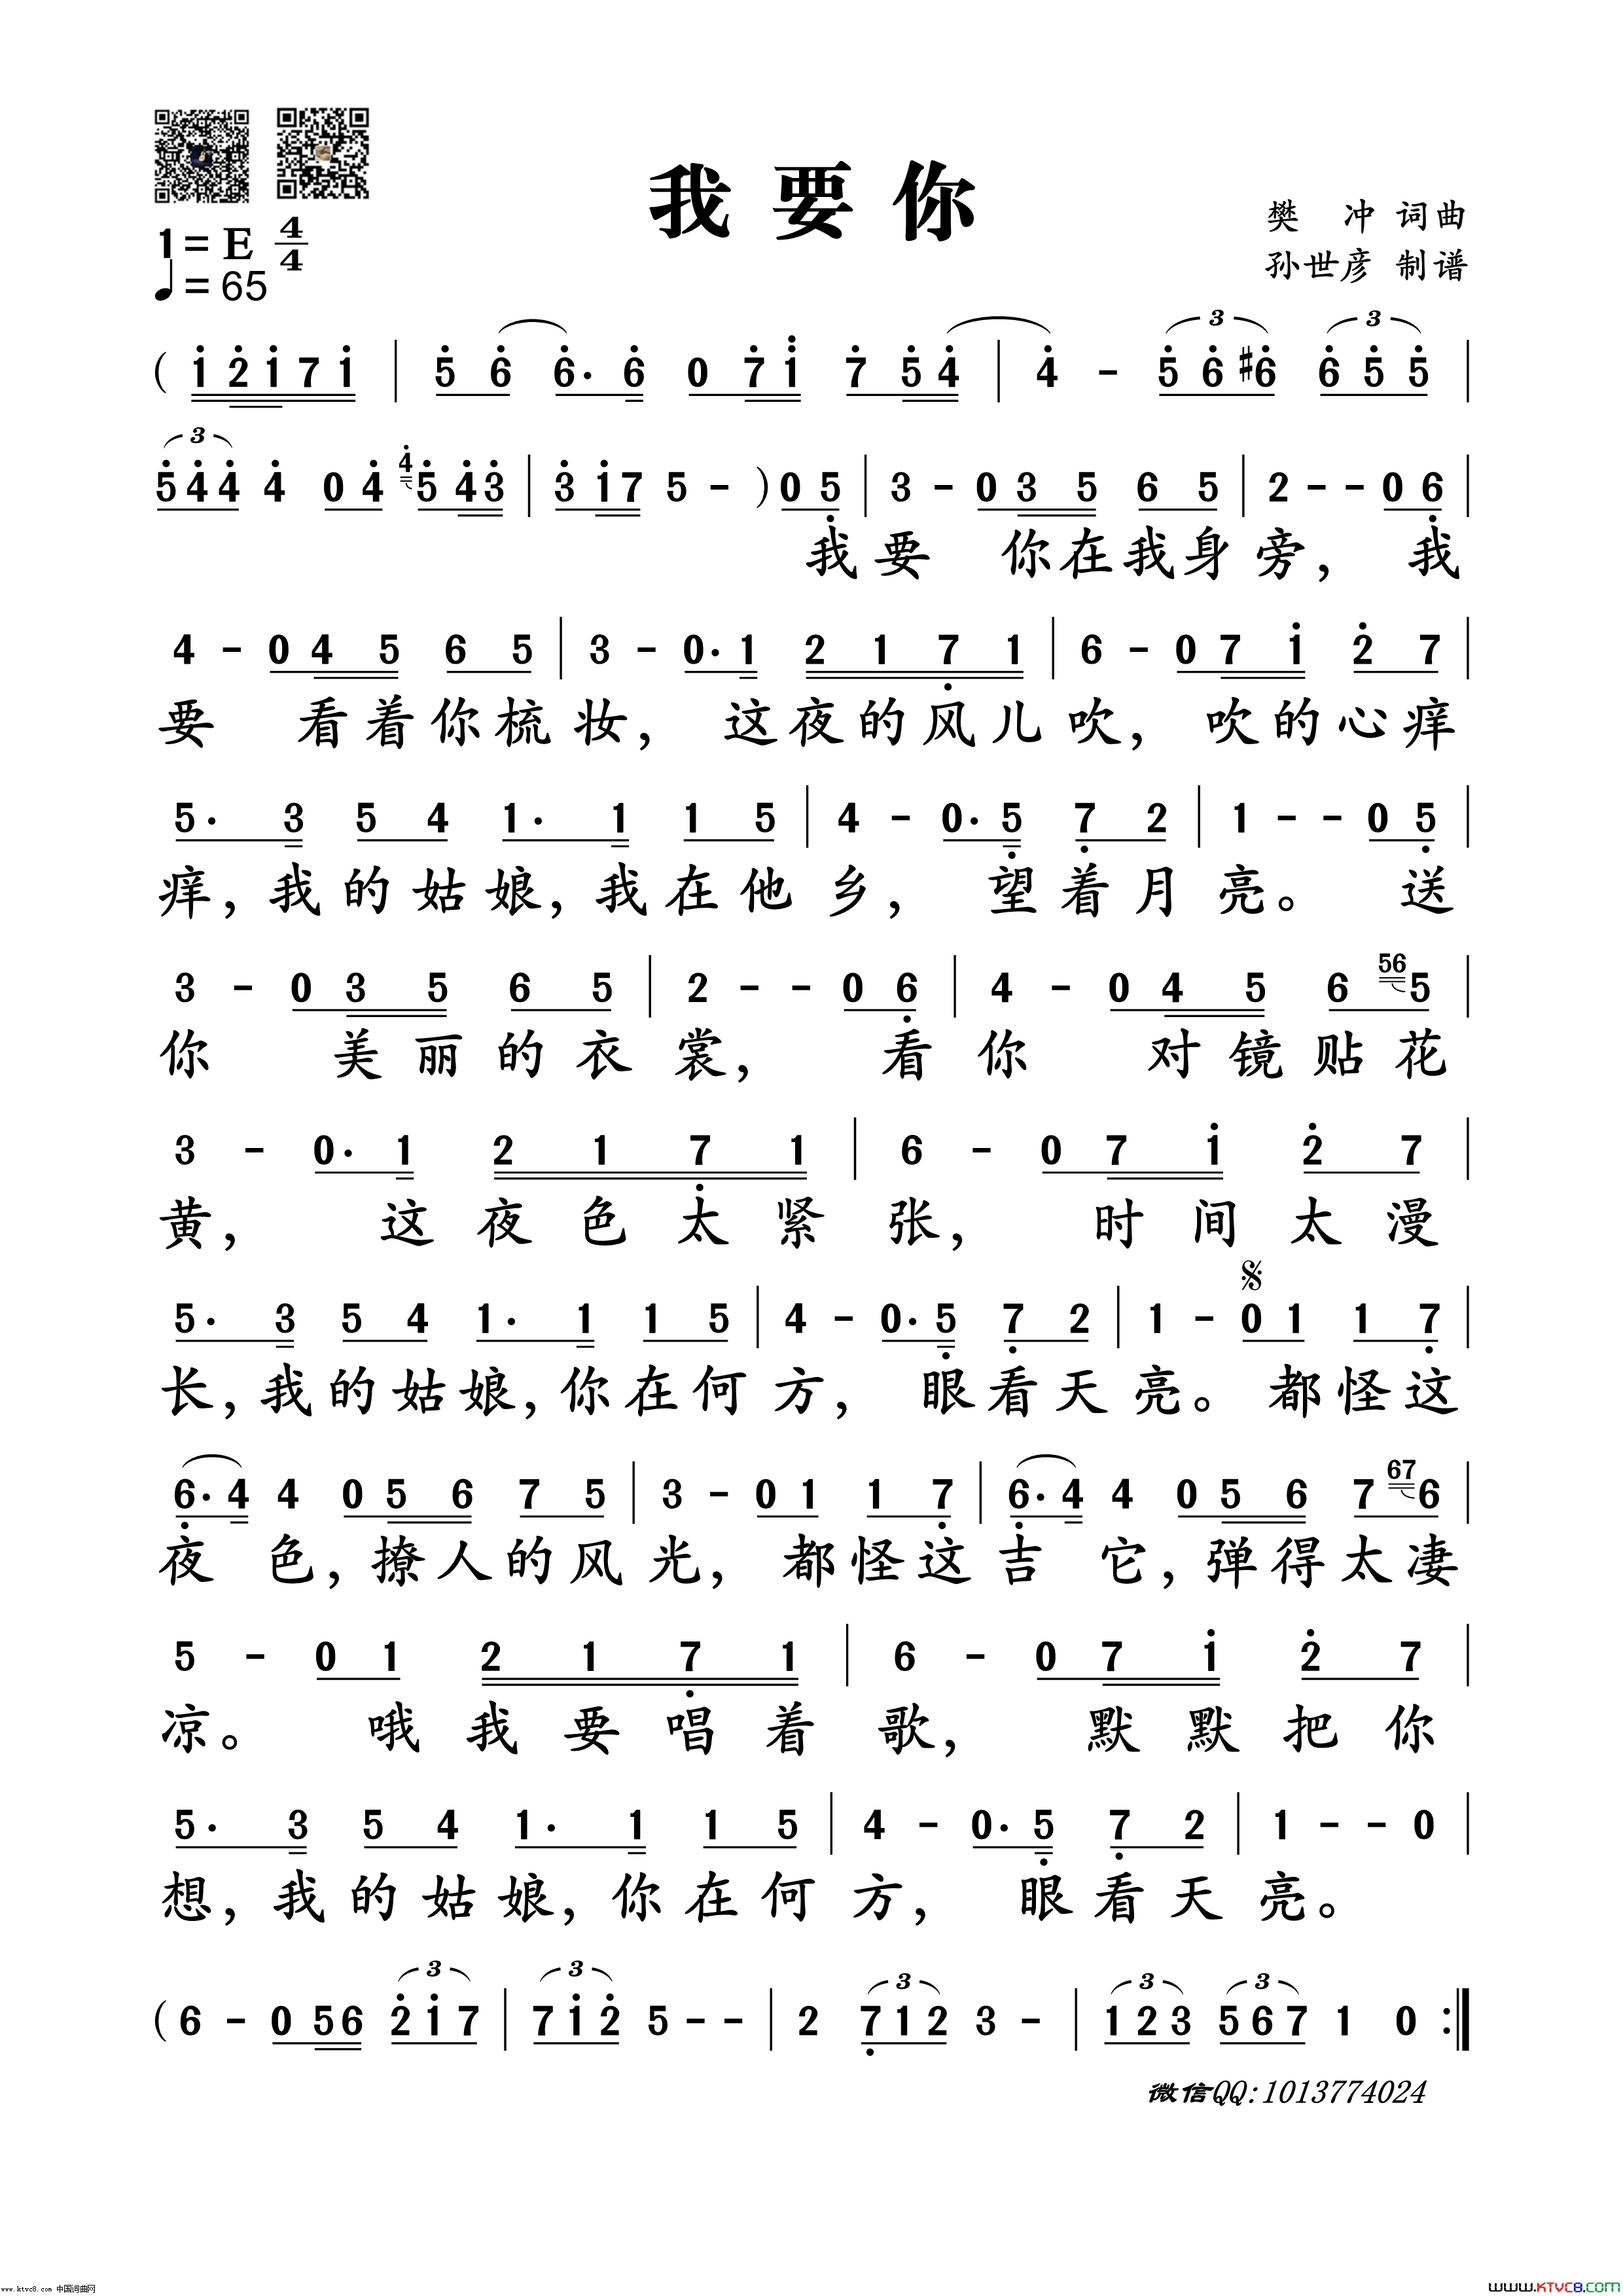 我要你
樊 冲 词曲
孙世彦 制谱
1=E 4/4
♩=65
( 1 2 1 7 1 | 5 6 6· 6 0 7 1 7 5 4 | 4 - 5 6 #6 6 5 5 |
5 4 4 4 0 4 4 5 4 3 | 3 1 7 5 - ) 0 5 | 3 - 0 3 5 6 5 | 2 - - 0 6 |
我要 你在我身旁，我
4 - 0 4 5 6 5 | 3 - 0· 1 2 1 7 1 | 6 - 0 7 1 2 7 |
要 看着你梳妆，这夜的风儿吹，吹的心痒
5· 3 5 4 1· 1 1 5 | 4 - 0· 5 7 2 | 1 - - 0 5 |
痒，我的姑娘，我在他乡，望着月亮。送
3 - 0 3 5 6 5 | 2 - - 0 6 | 4 - 0 4 5 6 56 5 |
你 美丽的衣裳，看你 对镜贴花
3 - 0· 1 2 1 7 1 | 6 - 0 7 1 2 7 |
黄，这夜色太紧张，时间太漫
5· 3 5 4 1· 1 1 5 | 4 - 0· 5 7 2 | 1 - 0 1 1 7 |
长，我的姑娘，你在何方，眼看天亮。都怪这
6· 4 4 0 5 6 7 5 | 3 - 0 1 1 7 | 6· 4 4 0 5 6 7 67 6 |
夜色，撩人的风光，都怪这吉它，弹得太凄
5 - 0 1 2 1 7 1 | 6 - 0 7 1 2 7 |
凉。哦我要唱着歌，默默把你
5· 3 5 4 1· 1 1 5 | 4 - 0· 5 7 2 | 1 - - 0 |
想，我的姑娘，你在何方，眼看天亮。
( 6 - 0 5 6 2 1 7 | 7 1 2 5 - - | 2 7 1 2 3 - | 1 2 3 5 6 7 1 0 :|
微信QQ:1013774024
www.ktvc8.com 中国词曲网
WWW.KTVC8.COM